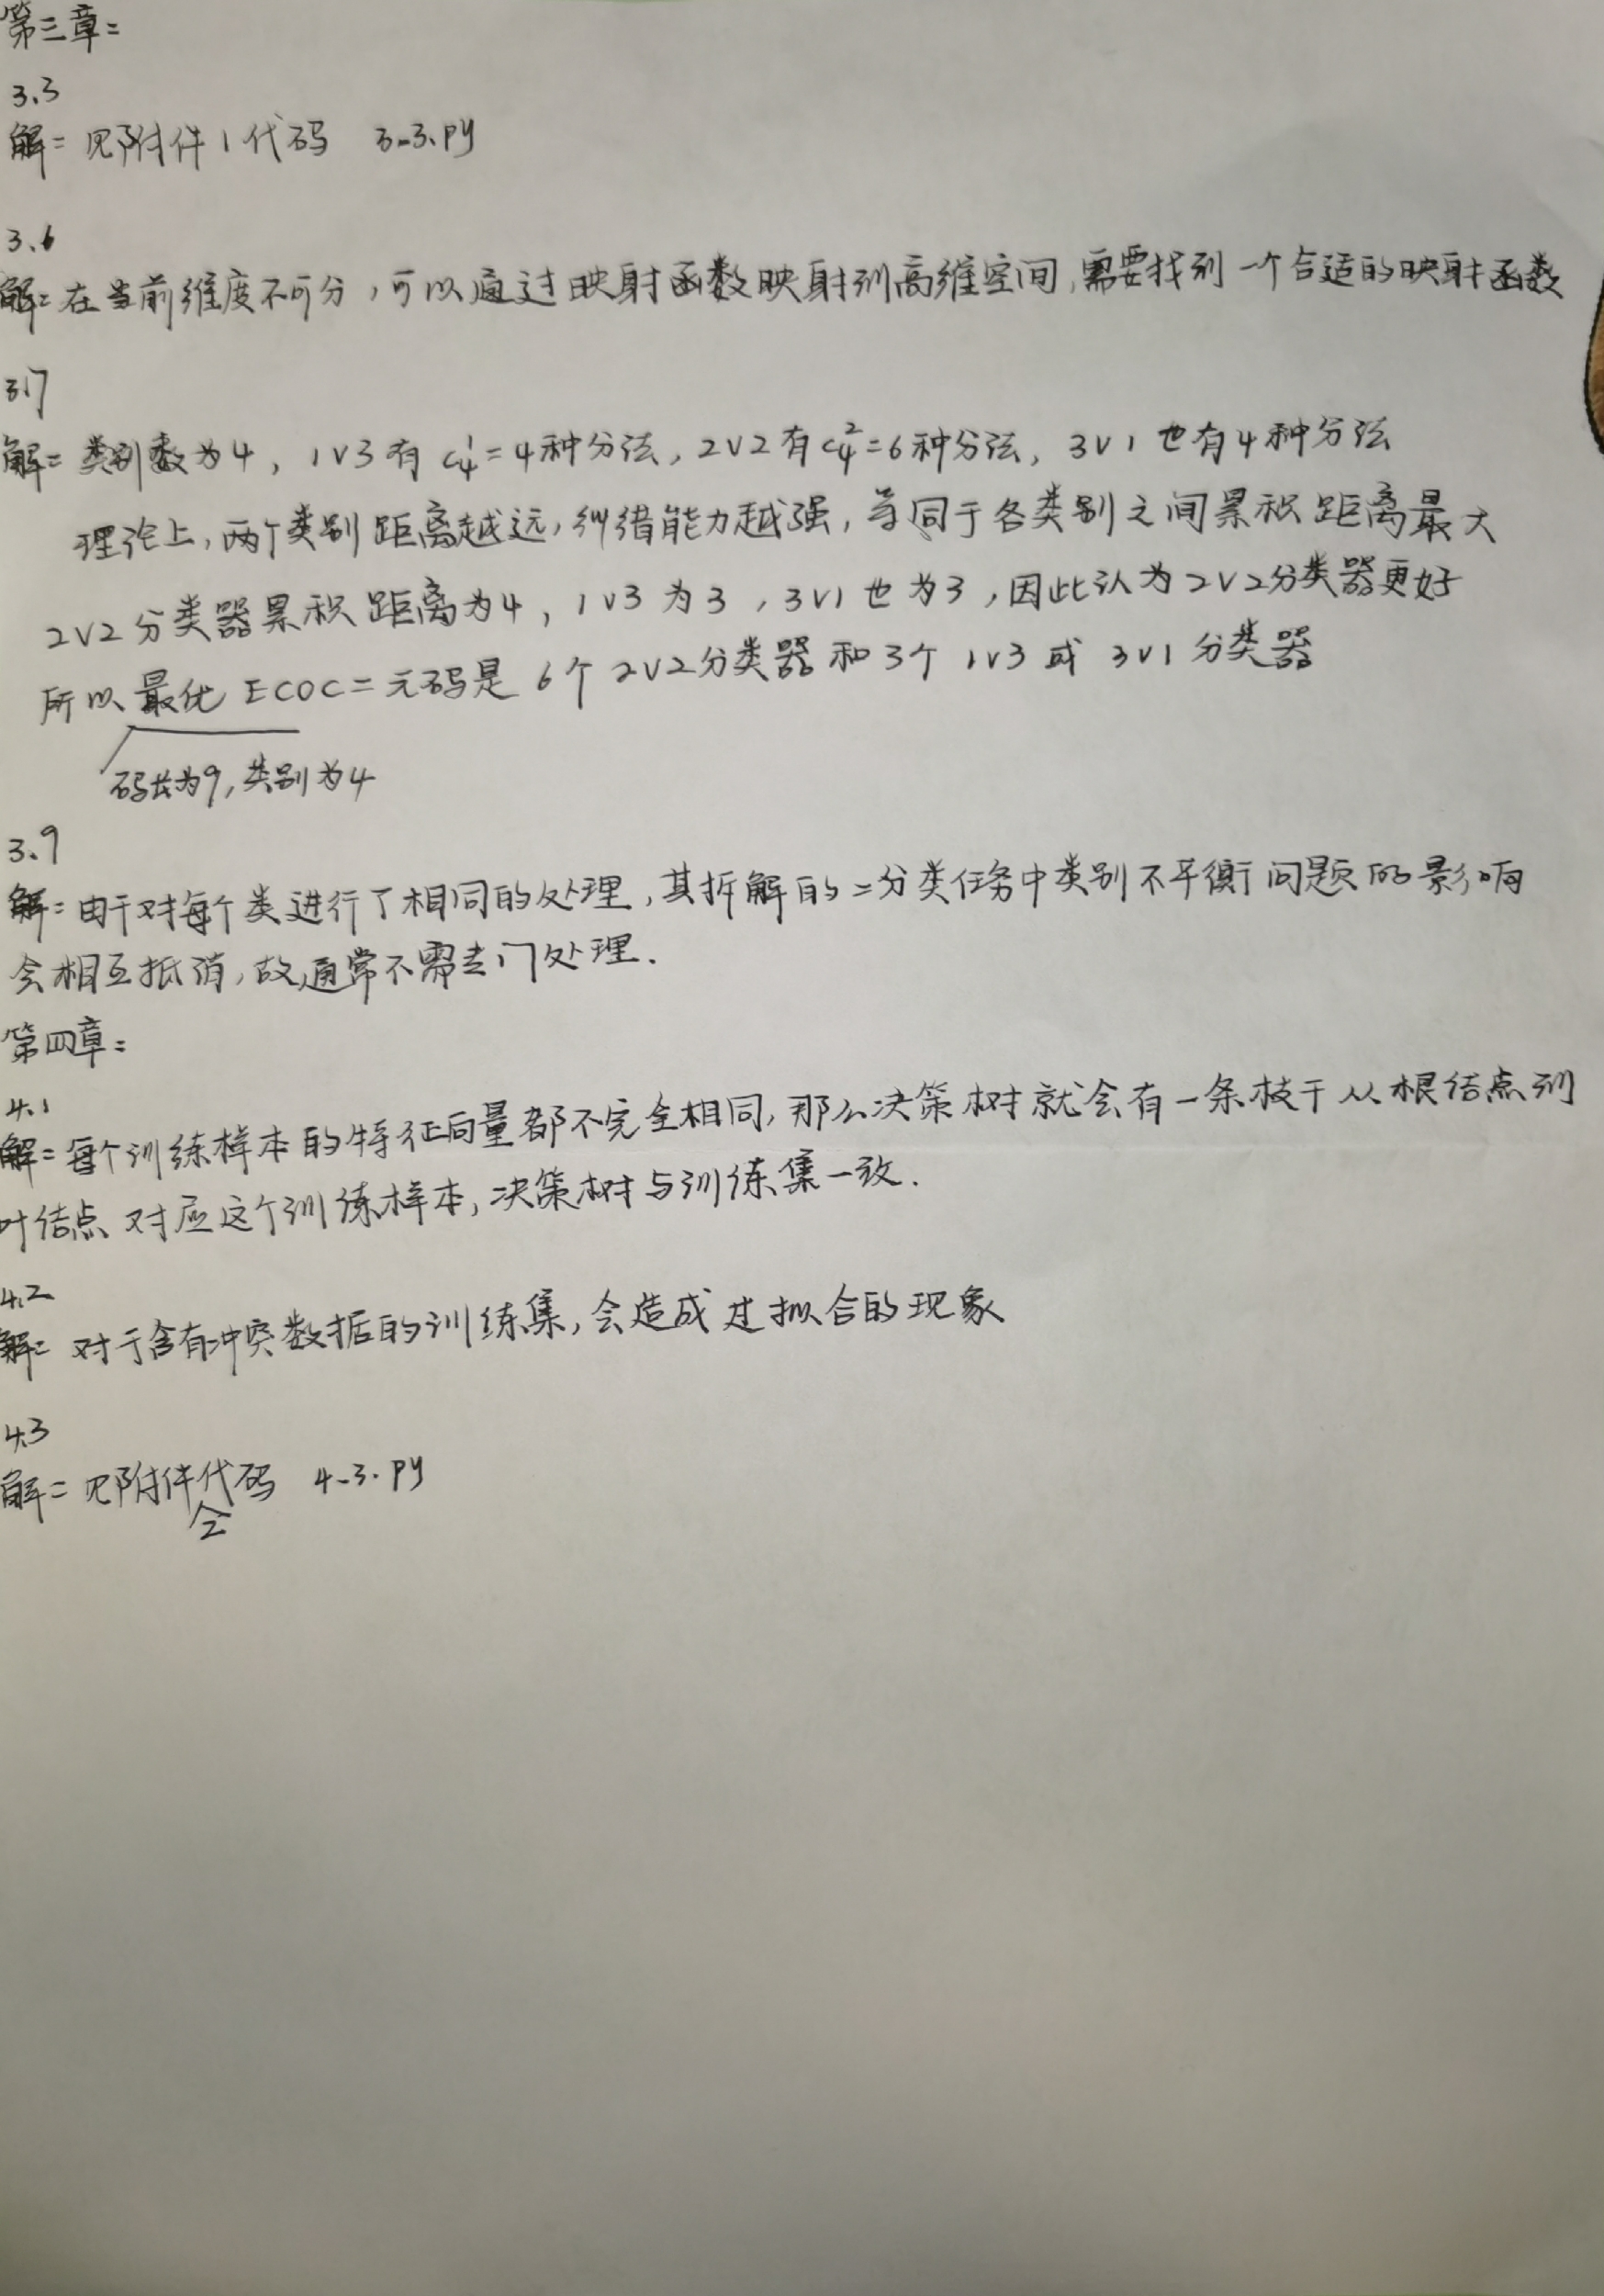 第三章:
3.3
解: 见附件1代码 3-3.py
3.6
解: 在当前维度不可分,可以通过映射函数映射到高维空间,需要找到一个合适的映射函数
3.7
解: 类别数为4, 1v3有 C₄¹=4种分法, 2v2有C₄²=6种分法, 3v1也有4种分法
理论上,两个类别距离越远,纠错能力越强,等同于各类别之间累积距离最大
2v2分类器累积距离为4, 1v3为3, 3v1也为3,因此认为2v2分类器更好
所以最优ECOC二元码是6个2v2分类器和3个1v3或3v1分类器
码长为9,类别为4
3.9
解: 由于对每个类进行了相同的处理,其拆解的二分类任务中类别不平衡问题的影响
会相互抵消,故通常不需专门处理.
第四章:
4.1
解: 每个训练样本的特征向量都不完全相同,那么决策树就会有一条枝干从根结点到
叶结点对应这个训练样本,决策树与训练集一致.
4.2
解: 对于含有冲突数据的训练集,会造成过拟合的现象
4.3
解: 见附件2代码 4-3.py